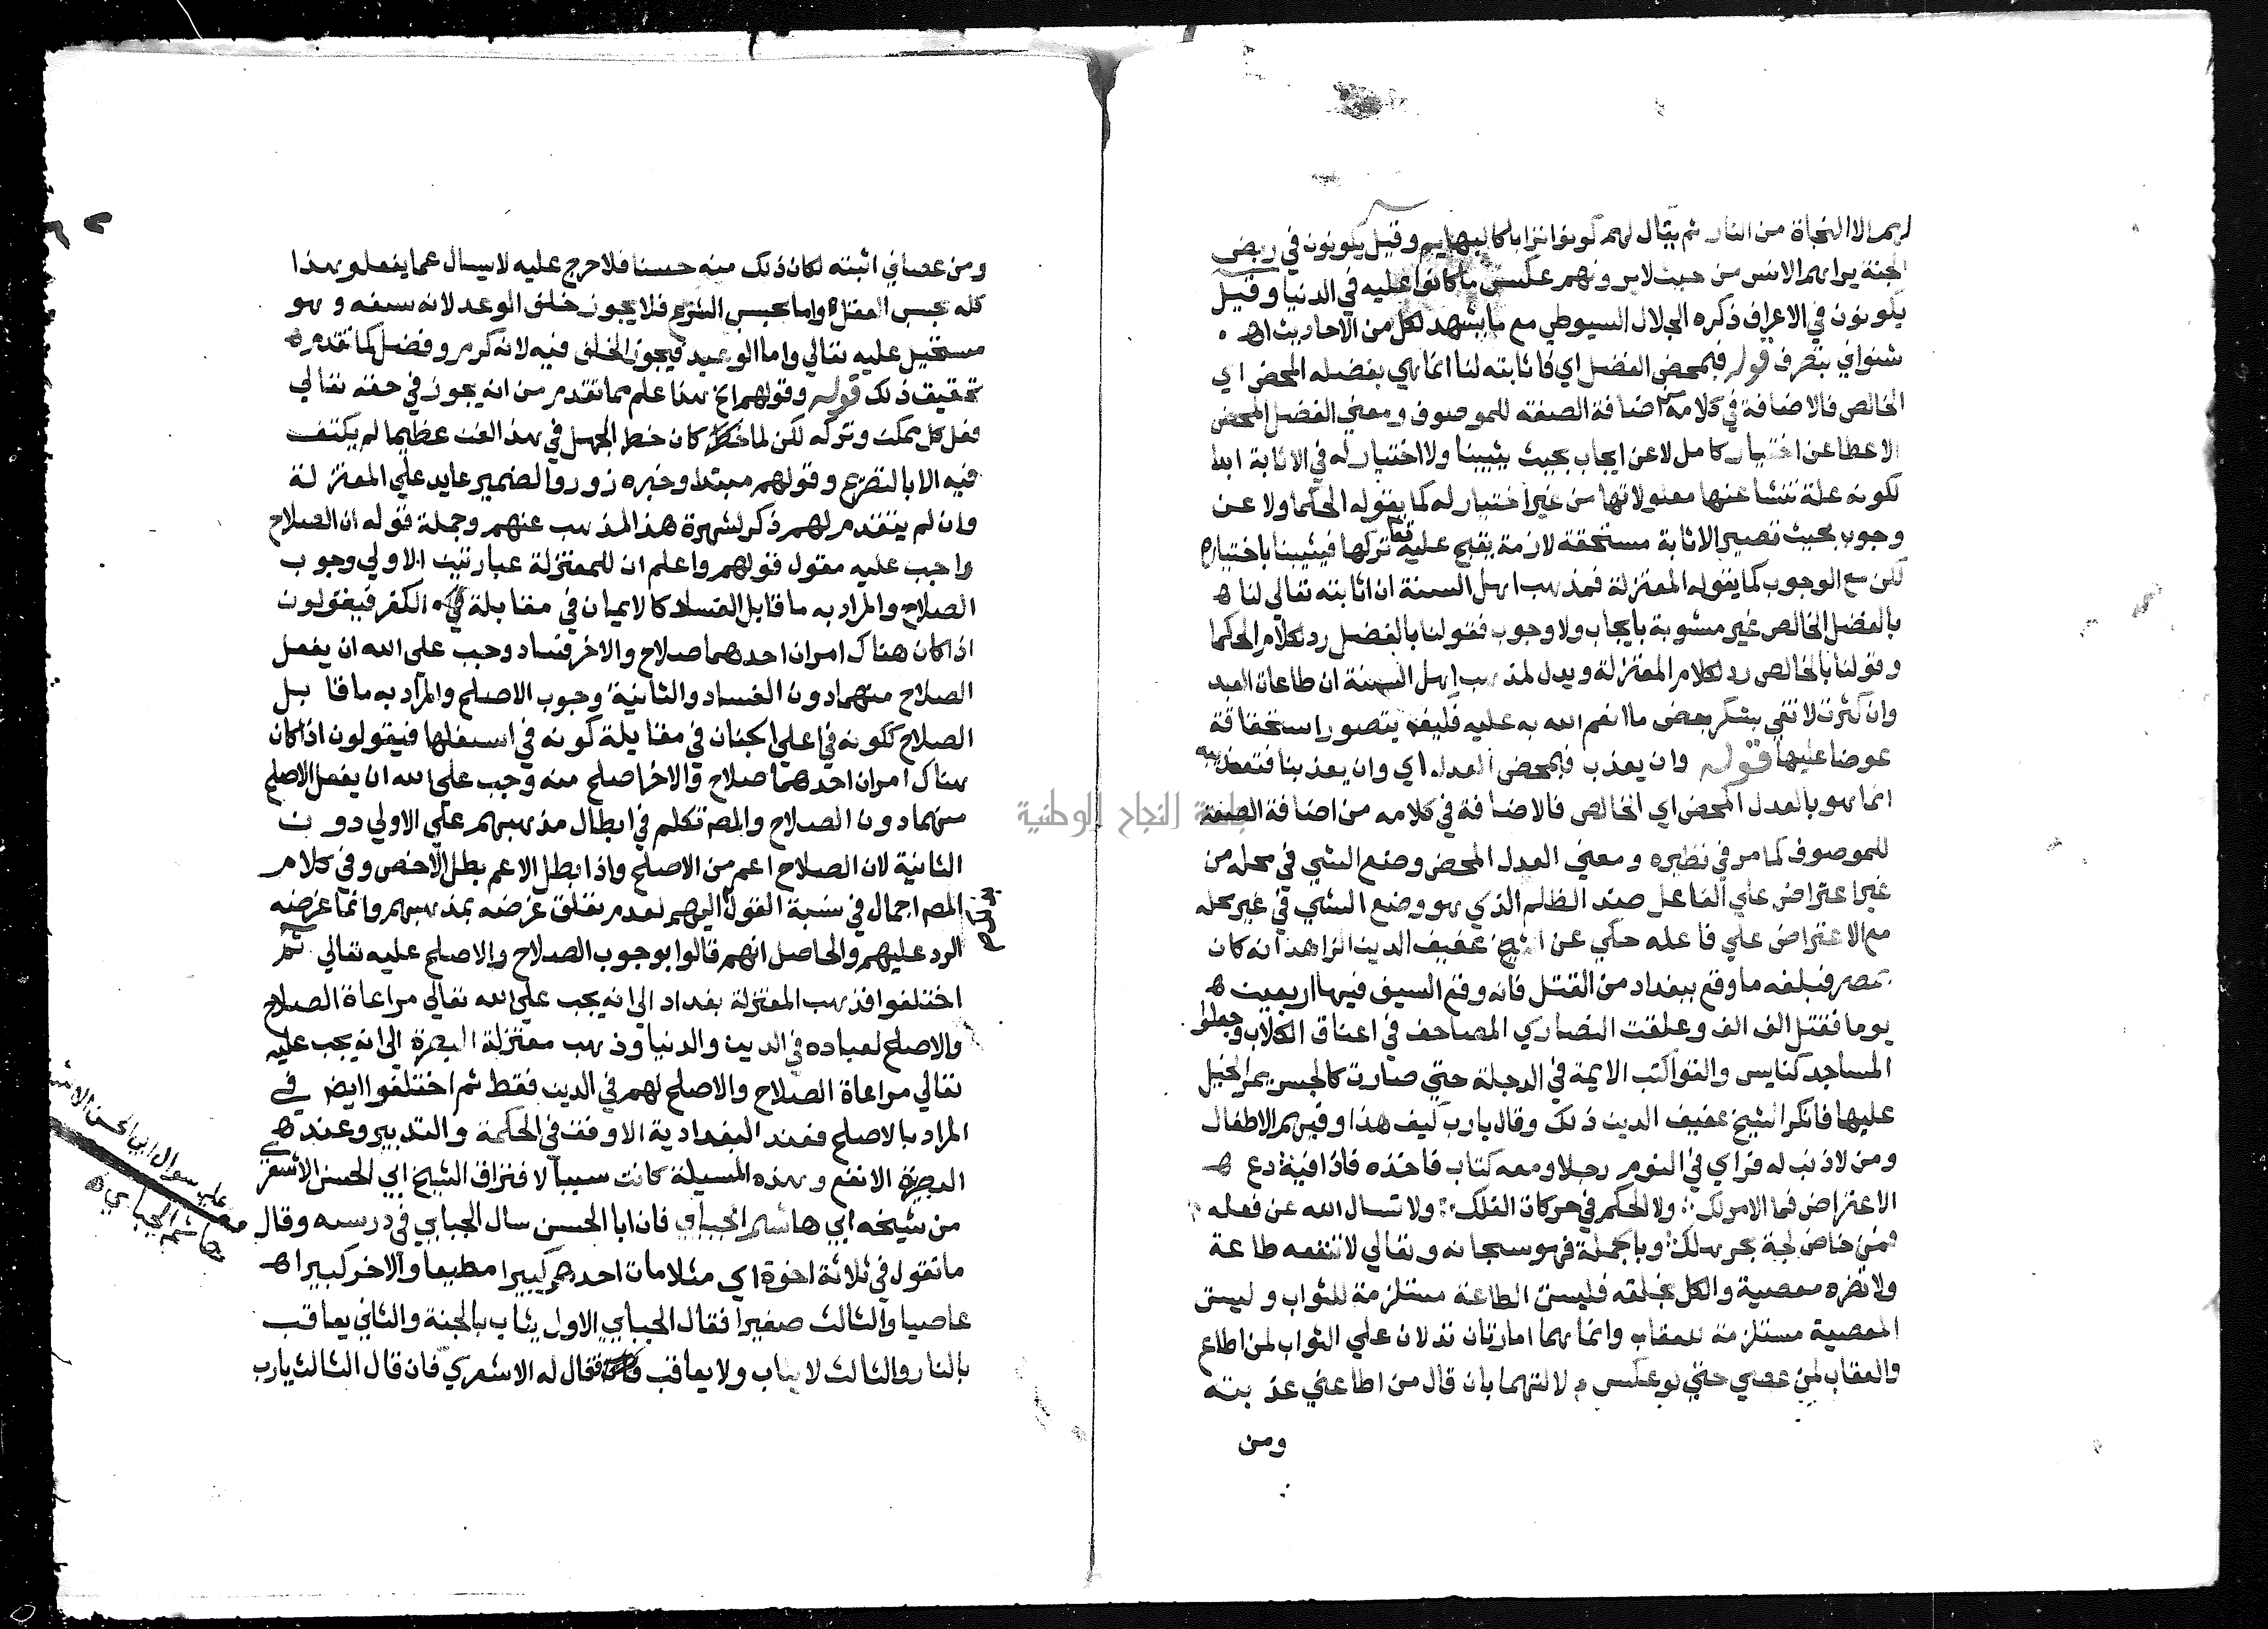 لهم الا النجاة من النار ثم يقال لهم كونوا ترابا كالبهايم وقيل يكونون في ربض
الجنة يراهم الانس من حيث لا يرونهم عكس ما كانوا عليه في الدنيا وقيل
يكونون في الاعراف ذكره الجلال السيوطي مع ما يشهد لكل من الاحاديث اهـ
شنواني بتصرف قوله فبمحض الفضل اي فاثابته لنا انما هي بفضله المحض اي
الخالص فالاضافة في كلامه من اضافة الصفة للموصوف ومعني الفضل المحض
الاعطا عن اختيار كامل لا عن ايجاب بحيث يثيبنا ولا اختيار له في الاثابة ابدا
لكونه علة تنشا عنها معلولاتها من غير اختيار له كما يقوله الحكما ولا عن
وجوب بحيث تصير الاثابة مستحقة لازمة يقبح عليه تعا تركها فيثيبنا باختياره
لكن مع الوجوب كما يقوله المعتزلة فمذهب اهل السنة ان اثابته تعالي لنا
بالفضل الخالص غير مشوبة بايجاب ولا وجوب فقولنا بالفضل رد لكلام الحكما
وقولنا بالخالص رد لكلام المعتزلة ويدل لمذهب اهل السنة ان طاعات العبد
وان كثرت لا تفي بشكر بعض ما انعم الله به عليه فكيف يتصور استحقاقه
عوضا عليها قوله وان يعذب فبمحض العدل اي وان يعذبنا فتعذيبه
انما هو بالعدل المحض اي الخالص فالاضافة في كلامه من اضافة الصفة
للموصوف كما مر في نظيره ومعني العدل المحض وضع الشي في محله من
غير اعتراض علي الفاعل ضد الظلم الذي هو وضع الشي في غير محله
مع الاعتراض علي فاعله حكي عن الشيخ عفيف الدين الزاهد انه كان
بمصر فبلغه ما وقع ببغداد من القتل فانه وقع السيف فيها اربعين
يوما فقتل الف الف وعلقت النصاري المصاحف في اعناق الكلاب وجعلوا
المساجد كنايس والقوا كتب الايمة في الدجلة حتي صارت كالجسر يمر الخيل
عليها فانكر الشيخ عفيف الدين ذلك وقال يارب كيف هذا وفيهم الاطفال
ومن لا ذنب له فراي في النوم رجلا ومعه كتاب فاخذه فاذا فيه دع
الاعتراض فما الامر لك ولا الحكم في حركات الفلك ولا تسال الله عن فعله
فمن خاض لجة بحر هلك وبالجملة فهو سبحانه وتعالي لا تنفعه طاعة
ولا تضره معصية والكل بخلقه فليست الطاعة مستلزمة للثواب وليست
المعصية مستلزمة للعقاب وانما هما امارتان تدلان علي الثواب لمن اطاع
والعقاب لمن عصي حتي لو عكس دلالتهما بان قال من اطاعني عذبته
ومن
ومن عصاني اثبته لكان ذلك منه حسنا فلا حرج عليه لا يسال عما يفعل وهذا
كله بحسب العقل واما بحسب الشرع فلا يجوز خلف الوعد لانه سفه وهو
مستحيل عليه تعالي واما الوعيد فيجوز الخلف فيه لانه كرم وفضل كما تقدم
تحقيق ذلك قوله وقولهم الخ هذا علم مما تقدم من انه يجوز في حقه تعالي
فعل كل ممكن وتركه لكن لما كان خطر الجهل في هذا الفن عظيما لم يكتف
فيه الا بالتصريح وقولهم مبتدا وخبره زور والضمير عايد علي المعتزلة
وان لم يتقدم لهم ذكر لشهرة هذا المذهب عنهم وجملة قوله ان الصلاح
واجب عليه مقول قولهم واعلم ان للمعتزلة عبارتين الاولي وجوب
الصلاح والمراد به ما قابل الفساد كالايمان في مقابلة الكفر فيقولون
اذا كان هناك امران احدهما صلاح والاخر فساد وجب علي الله ان يفعل
الصلاح منهما دون الفساد والثانية وجوب الاصلح والمراد به ما قابل
الصلاح ككونه في اعلي الجنان في مقابلة كونه في اسفلها فيقولون اذا كان
هناك امران احدهما صلاح والاخر اصلح منه وجب علي الله ان يفعل الاصلح
منهما دون الصلاح والمصـ تكلم في ابطال مذهبهم علي الاولي دون
الثانية لان الصلاح اعم من الاصلح واذا بطل الاعم بطل الاخص وفي كلام
المصـ اجمال في نسبة القول اليهم لعدم تعلق غرضه بمذهبهم وانما غرضه
الرد عليهم والحاصل انهم قالوا بوجوب الصلاح والاصلح عليه تعالي ثم
اختلفوا فذهب المعتزلة بغداد الي انه يجب علي الله تعالي مراعاة الصلاح
والاصلح لعباده في الدين والدنيا وذهب معتزلة البصرة الي انه يجب عليه
تعالي مراعاة الصلاح والاصلح لهم في الدين فقط ثم اختلفوا ايضا في
المراد بالاصلح فعند البغدادية الاوفق في الحكمة والتدبير وعند
البصرة الانفع وهذه المسيلة كانت سببا لافتراق الشيخ ابي الحسن الاشعري
من شيخه ابي هاشم الجباي فان ابا الحسن سال الجبايي في درسه وقال
ما تقول في ثلاثة اخوة اي مثلا مات احدهم كبيرا مطيعا والاخر كبيرا
عاصيا والثالث صغيرا فقال الجبايي الاول يثاب بالجنة والثاني يعاقب
بالنار والثالث لا يثاب ولا يعاقب فقال له الاشعري فان قال الثالث يارب
سوال ابي الحسن
جامعة النجاح الوطنية